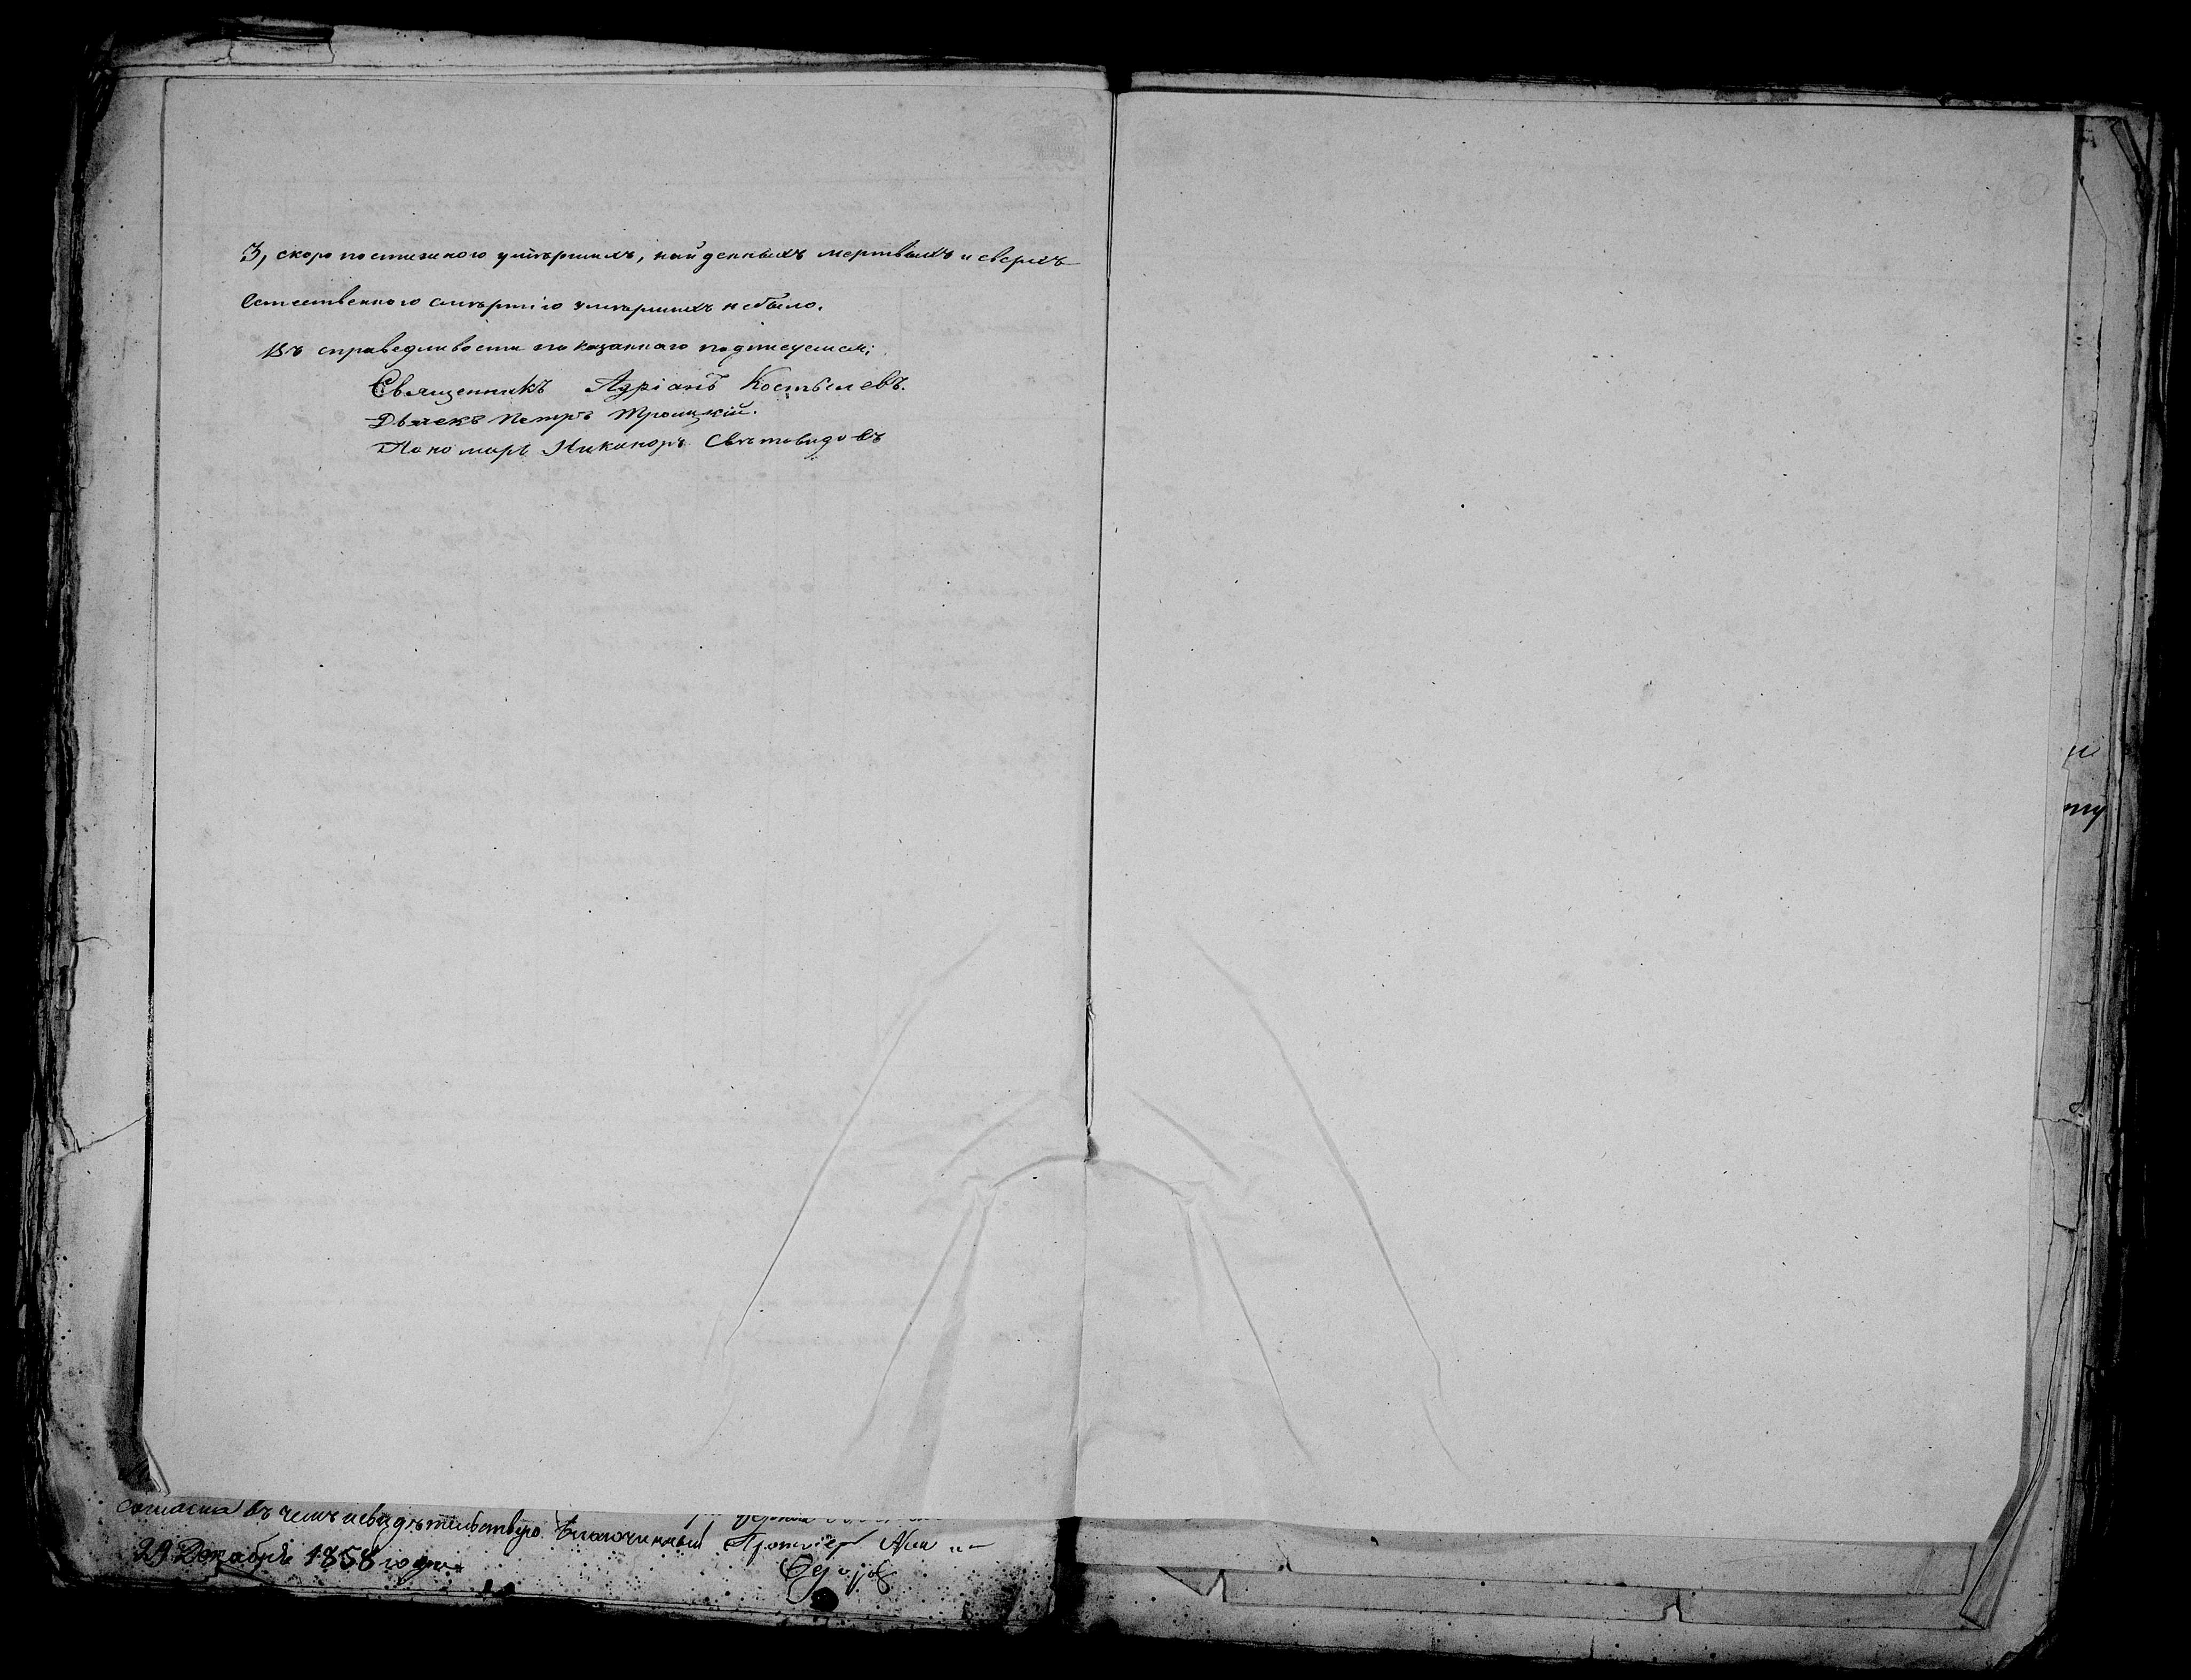 3, скоропостижного умѣршихъ, найденныхъ мертвыхъ и сверхъ-
естественного смѣртiю умѣршихъ небыло.
Въ справедливости показаннаго подписуемся:
Священникъ Адрiанъ Костылевъ.
Дьячекъ Петръ Троицкiй.
Пономарь Никаноръ Свѣтовидовъ
согласна въ чемъ и свидѣтельствую. Благочинный
29 Декабря 1858 года